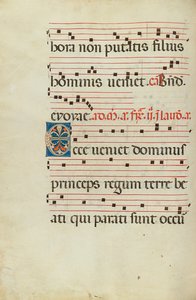 hora non putatis filius
hominis veniet. cā Bñd.
exorae.
Ecce veniet dominus
princeps regum terre be
ati qui parati sunt occu